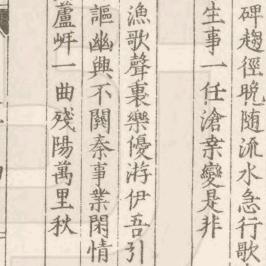 碑趨徑晚随流水急行歌
生事一任滄桒變是非
漁歌聲裏樂優游伊吾引
謳幽興不関秦事業閑情
蘆屽一曲残陽萬里秋